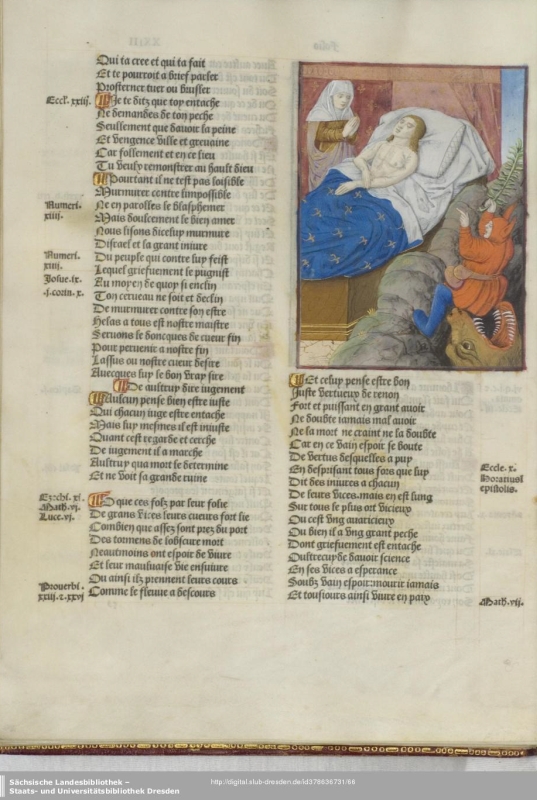 Qui ta cree et qui ta fait
Et te pourroit a brief parler
Prosterner tuer ou brusler
Eccl. xxiij.
Je te ditz que trop entache
Ne demandes de ton peche
Seullement que davoir la peine
Et vengence ville et grevaine
Car follement et en ce lieu
Tu veulx remonstrer au hault dieu
Pourtant il ne test pas loisible
Murmurer contre limpossible
Numeri. xiiij.
Ne en parolles le blasphemer
Mais doulcement le bien amer
Nous lisons dicelluy murmure
Numeri. xiiij.
Disrael et la grant iniure
Du peuple qui contre luy feist
Josue. ix.
Lequel griefuement se pugnist
.j. corin. x.
Au moyen de quoy si enclin
Ton cerveau ne soit et declin
De murmurer contre son estre
Helas a tous est nostre maistre
Servons le doncques de cueur fin
Pour pervenir a nostre fin
Lassus ou nostre cueur desire
Avecques luy le bon vray sire
De aultruy dire iugement
Aulcun pense bien estre iuste
Qui chacun iuge estre entache
Mais luy mesmes il est iniuste
Quant cest regarde et cerche
De iugement il a marche
Aultruy qua mort le determine
Et ne voit sa grande ruine
Ezechi. xi.
Math. vj.
Luce. vj.
O que ces folz par leur folie
De grans vices leurs cueurs fort lie
Combien que assez sont prez du port
Des tormens de lobscure mort
Neautmoins ont espoir de vivre
Et leur mauluaise vie ensuivre
Ou ainsi ilz prennent leurs cours
Proverbi. xxiij. z. xxvj
Comme le fleuve a descours
Et celuy pense estre bon
Juste vertueux de renon
Fort et puissant en grant avoir
Ne doubte iamais mal avoir
Ne la mort ne craint ne la doubte
Car en ce vain espoir se boute
De vertus desquelles a puy
Eccle. x.
En desprisant tous fors que luy
Horatius epistolis.
Dit des iniures a chacun
De leurs vices. mais en est lung
Sur tous le plus ort vicieux
Ou cest ung avaricieux
Ou bien il a ung grant peche
Dont griefuement est entache
Oultrecuyde davoir science
En ses vices a esperance
Soubz vain espoir: mourir iamais
Et tousiours ainsi vivre en paix
Math. vij.
Sächsische Landesbibliothek –
Staats- und Universitätsbibliothek Dresden
http://digital.slub-dresden.de/id378636731/66